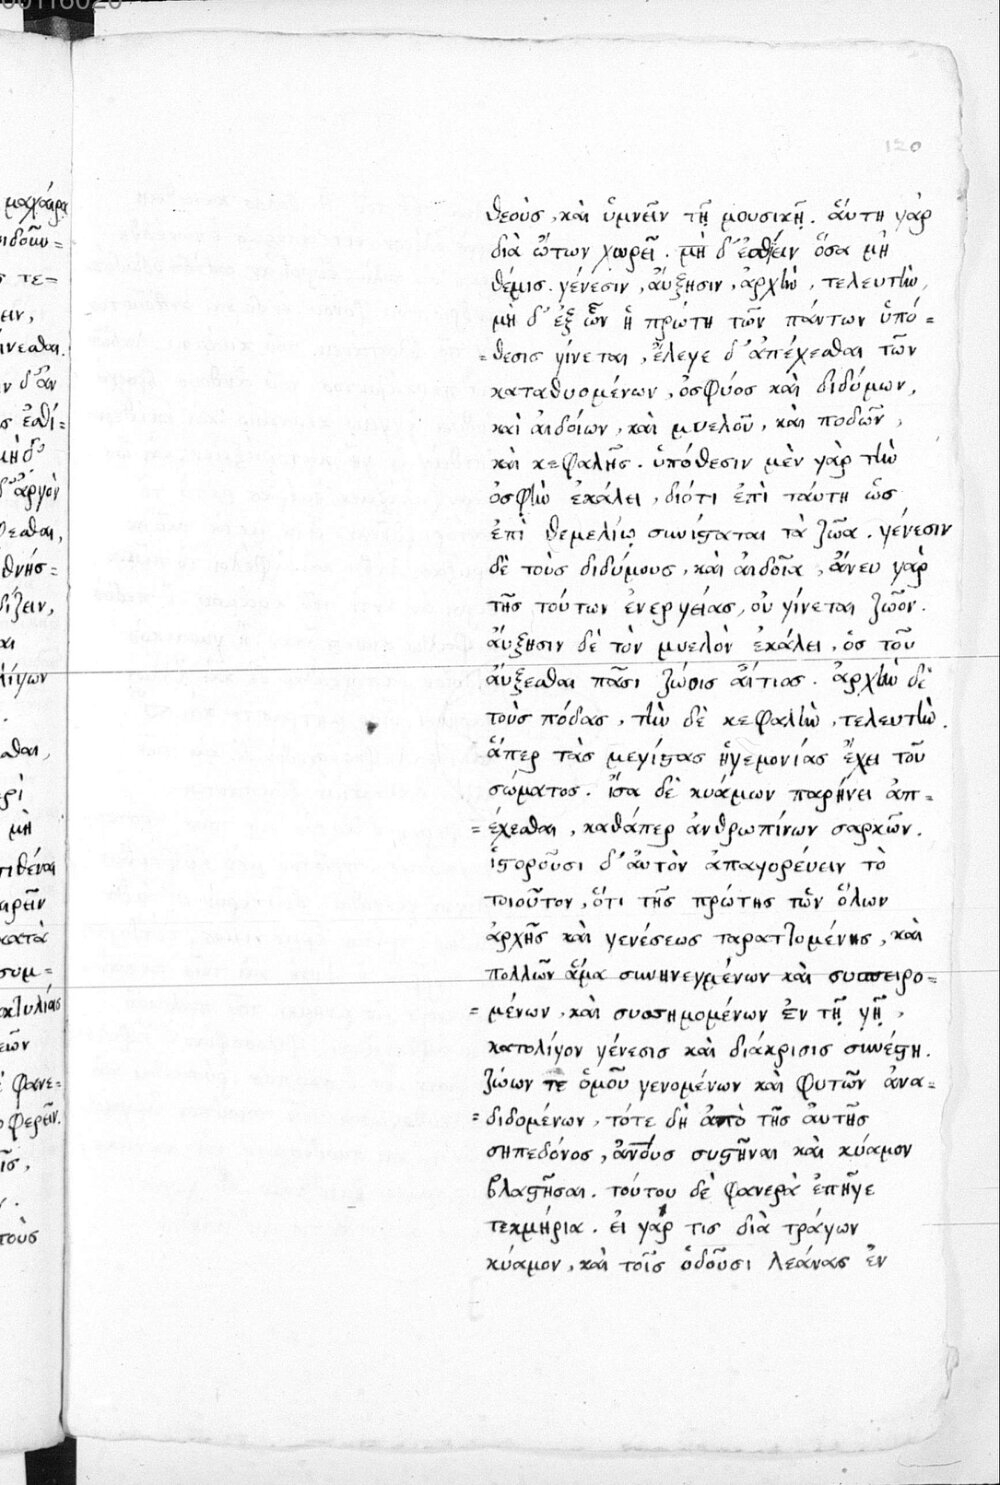 00116020
120
μαχαίρᾳ
ιδοῦν=
ς τε=
ειν,
ίνεσθαι.
ν δ' ἂν
ς ἐσθί=
μὴ δ'
δ' ἀργὸν
θεσθαι,
θνήσ=
δίζειν,
αι
λίγων
σθαι,
ερὶ
μὴ
τιθέναι
αιρεῖν
κατὰ
συμ=
ακτυλίας
εῖων
φανε=
φερεῖν.
τοὺς
θεοὺς, καὶ ὑμνεῖν τῇ μουσικῇ. ἅυτη γὰρ
διὰ ὤτων χωρεῖ. μὴ δ' ἐσθίειν ὅσα μὴ
θέμις. γένεσιν, ἄυξησιν, ἀρχὴν, τελευτὴν,
μὴ δ' ἐξ ὧν ἡ πρώτη τῶν πάντων ὑπό=
=θεσις γίνεται, ἔλεγε δ' ἀπέχεσθαι τῶν
καταθυομένων, ὀσφύος καὶ διδύμων,
καὶ ἀιδοίων, καὶ μυελοῦ, καὶ ποδῶν,
καὶ κεφαλῆς. ὑπόθεσιν μὲν γὰρ τὴν
ὀσφὺν ἐκάλει, διότι ἐπὶ ταύτη ὡς
ἐπὶ θεμελίῳ συνίσταται τὰ ζῶα. γένεσιν
δὲ τοὺς διδύμους, καὶ ἀιδοῖα, ἄνευ γὰρ
τῆς τούτων ἐνεργείας, οὐ γίνεται ζῶον.
ἄυξησιν δὲ τὸν μυελὸν ἐκάλει, ὃς τοῦ
ἀύξεσθαι πᾶσι ζώοις ἄιτιος. ἀρχὴν δὲ
τοὺς πόδας, τὴν δὲ κεφαλὴν, τελευτὴν.
ἅπερ τὰς μεγίστας ἡγεμονίας ἔχει τοῦ
σώματος. ἴσα δὲ κυάμων παρήνει ἀπ=
=έχεσθαι, καθάπερ ἀνθρωπίνων σαρκῶν.
ἱστοροῦσι δ' ἀυτὸν ἀπαγορέυειν τὸ
τοιοῦτον, ὅτι τῆς πρώτης τῶν ὅλων
ἀρχῆς καὶ γενέσεως ταραττομένης, καὶ
πολλῶν ἅμα συνηνεγμένων καὶ συσπειρο=
=μένων, καὶ συσσημομένων ἐν τῇ γῇ,
κατολίγον γένεσις καὶ διάκρισις συνέστη.
ζώων τε ὁμοῦ γενομένων καὶ φυτῶν ἀνα=
=διδομένων, τότε δὴ ἀπὸ τῆς ἀυτῆς
σηπεδόνος, ἀνους συστῆναι καὶ κύαμον
βλαστῆσαι. τούτου δὲ φανερὰ ἐπῆγε
τεκμήρια. ἐι γάρ τις διὰ τράγων
κύαμον, καὶ τοῖς ὀδοῦσι λεάνας ἐν